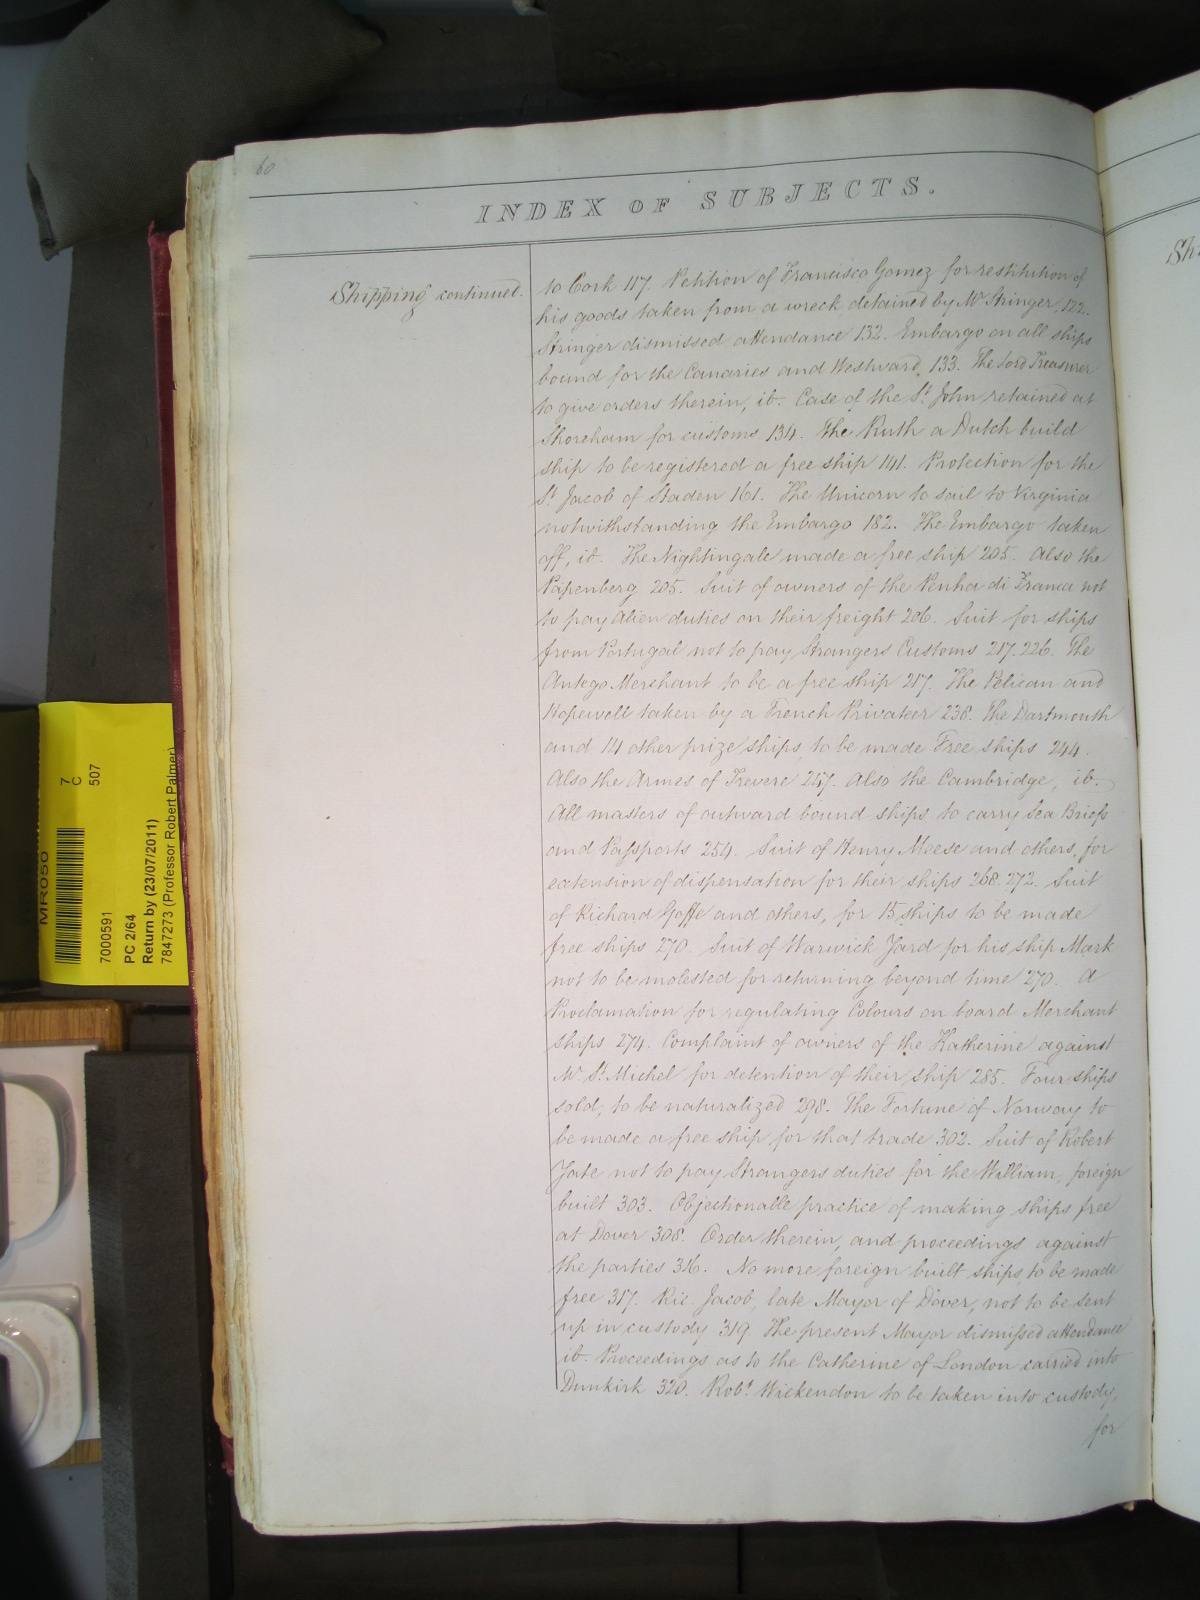 60
INDEX OF SUBJECTS.
Shipping continued.
to Cork 117. Petition of Francisco Gomez for restitution of
his goods taken from a wreck, detained by Mr Stringer, 122.
Stringer dismissed attendance 132. Embargo on all ships
bound for the Canaries and Westward, 133. The Lord Treasurer
to give orders therein, ib. Case of the St. John retained at
Shoreham for customs 134. The Ruth a Dutch build
ship to be registered a free ship 141. Protection for the
St Jacob of Staden 161. The Unicorn to sail to Virginia
notwithstanding the Embargo 182. The Embargo taken
off, ib. The Nightingale made a free ship 205. Also the
Papenberg 205. Suit of owners of the Penha di Franca not
to pay Alien duties on their freight 206. Suit for ships
from Portugal not to pay Strangers Customs 217. 226. The
Antego Merchant to be a free ship 217. The Pelican and
Hopewell taken by a French Privateer 238. The Dartmouth
and 14 other prize ships, to be made Free ships 244.
Also the Armes of Trevere 247. Also the Cambridge, ib.
All masters of outward bound ships to carry Sea Briefs
and Passports 254. Suit of Henry Meese and others, for
extension of dispensation for their ships 268. 272. Suit
of Richard Goffe and others, for 15 ships to be made
free ships 270. Suit of Warwick Yard for his ship Mark
not to be molested for returning beyond time 270. A
Proclamation for regulating Colours on board Merchant
ships 274. Complaint of owners of the Katherine against
Mr St. Michel for detention of their ship 285. Four ships
sold, to be naturalized 298. The Fortune of Norway to
be made a free ship for that trade 302. Suit of Robert
Yate not to pay Strangers duties for the William, foreign
built 303. Objectionable practice of making ships free
at Dover 308. Order therein, and proceedings against
the parties 316. No more foreign built ships, to be made
free 317. Ric. Jacob, late Mayor of Dover, not to be sent
up in custody 319 The present Mayor dismissed attendance
ib. Proceedings as to the Catherine of London carried into
Dunkirk 320. Robt. Wickendon to be taken into custody,
for
MR050
7
C
507
7000591
PC 2/64
Return by (23/07/2011)
7847273 (Professor Robert Palmer)